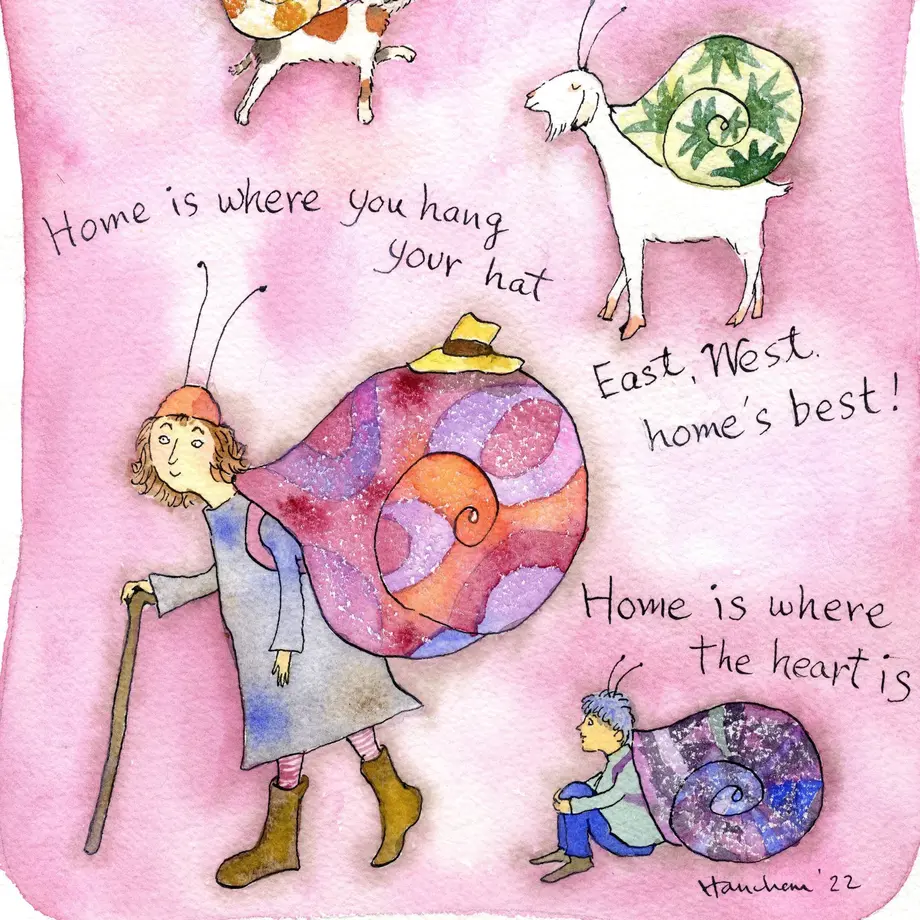 Home is where you hang
your hat
East, West.
home's best!
Home is where
the heart is
'22